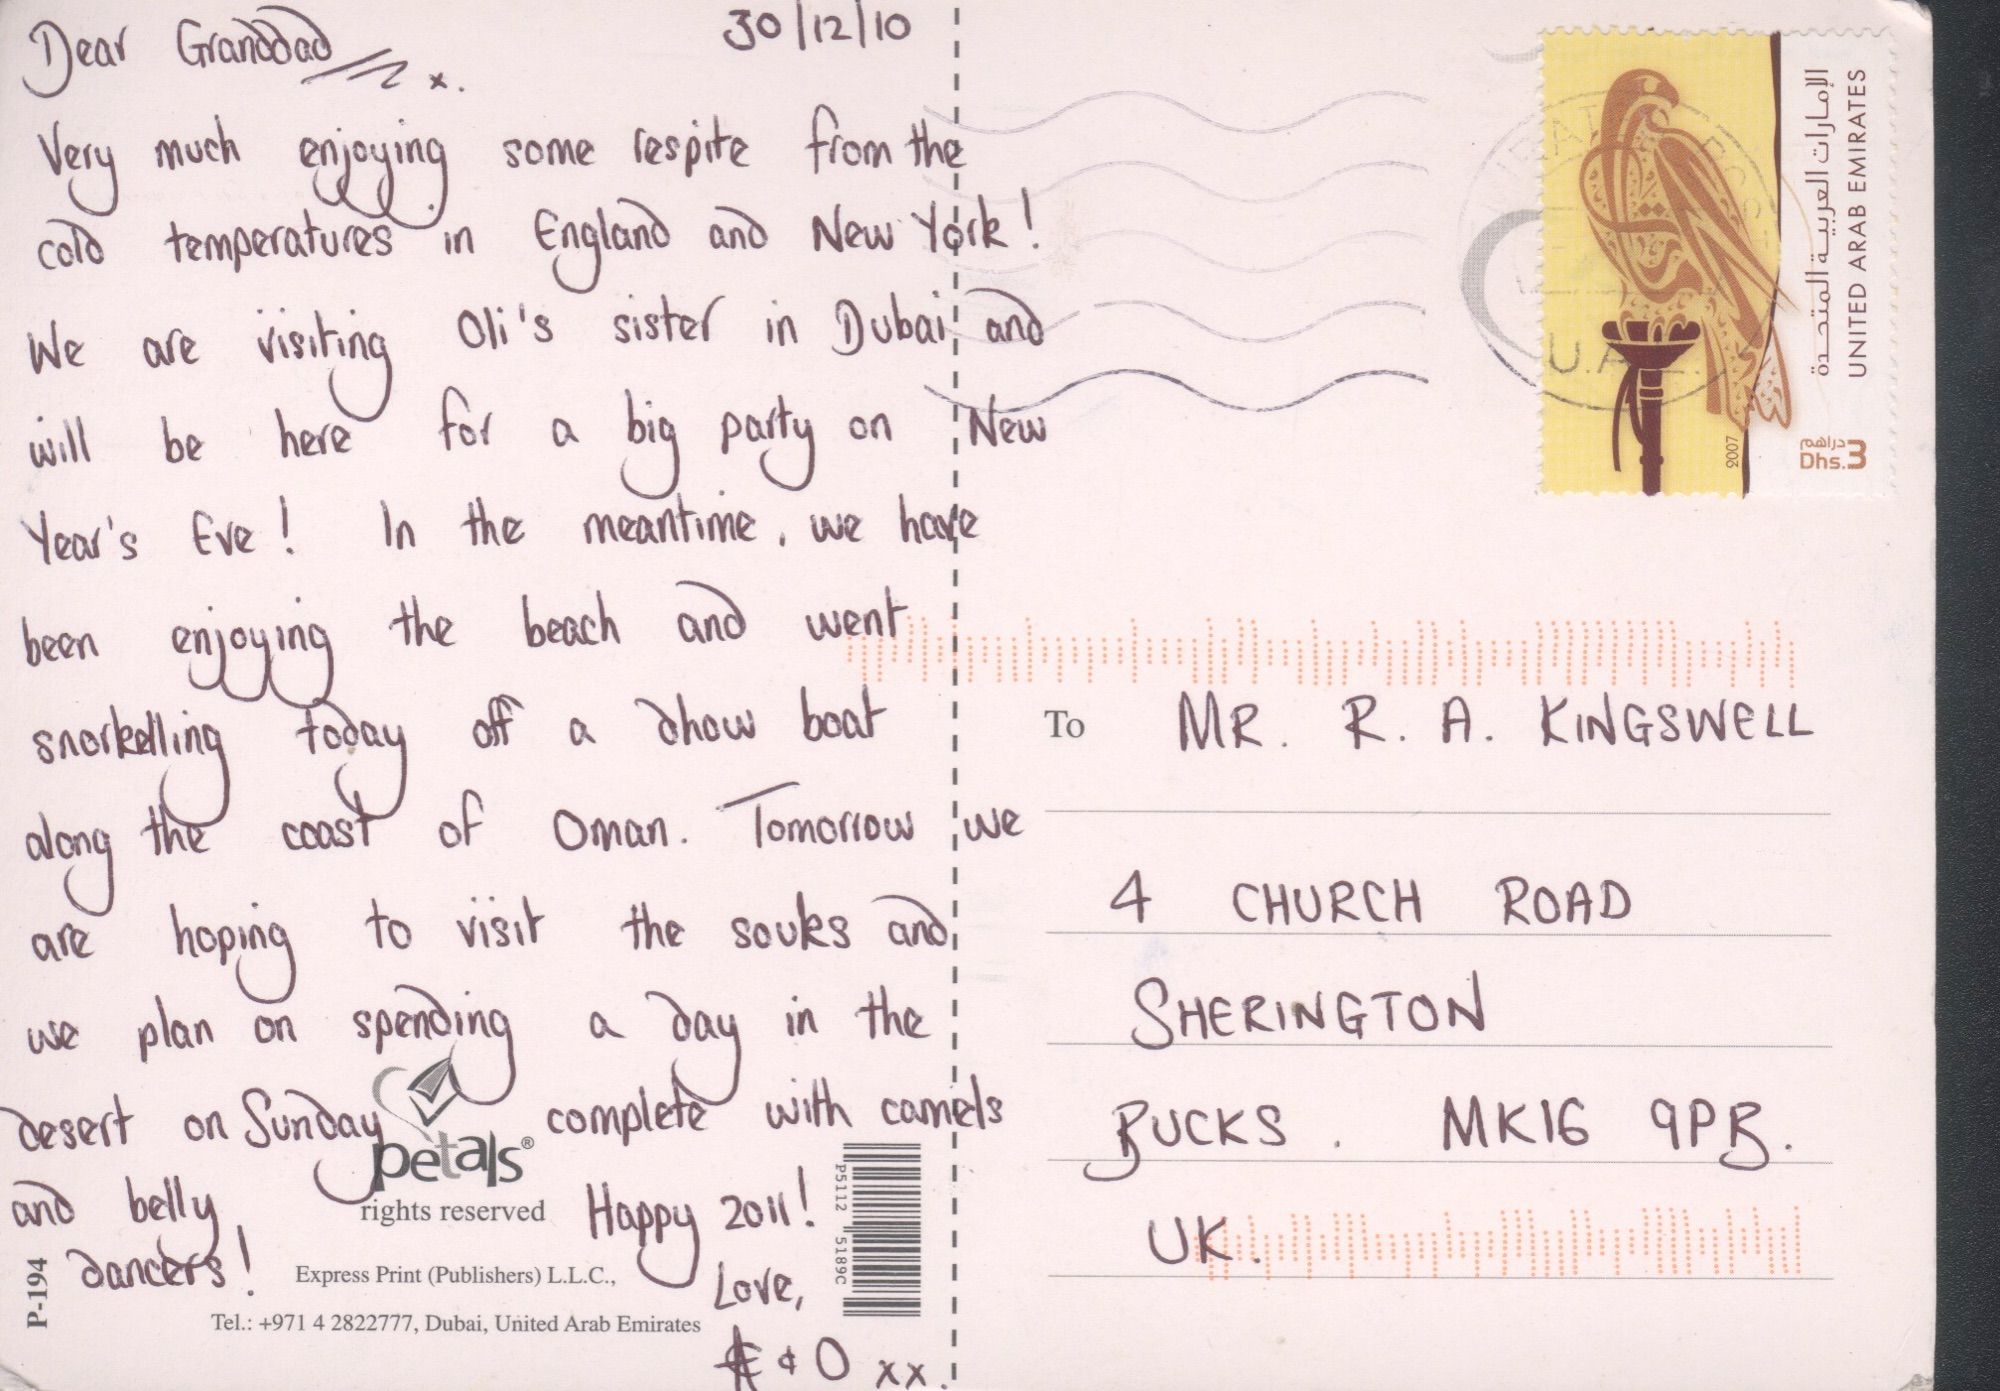 Dear Granddad x.
30/12/10
Very much enjoying some respite from the
cold temperatures in England and New York!
We are visiting Oli's sister in Dubai and
will be here for a big party on New
Year's Eve! In the meantime, we have
been enjoying the beach and went
snorkelling today off a dhow boat
along the coast of Oman. Tomorrow we
are hoping to visit the souks and
we plan on spending a day in the
desert on Sunday complete with camels
and belly
dancers!
Happy 2011!
Love,
& O xx.
petals®
rights reserved
Express Print (Publishers) L.L.C.,
Tel.: +971 4 2822777, Dubai, United Arab Emirates
P-194
P5112 5189C
الإمارات العربية المتحدة
UNITED ARAB EMIRATES
2007
دراهم
Dhs.3
U.A.E.
To MR. R. A. KINGSWELL
4 CHURCH ROAD
SHERINGTON
BUCKS. MK16 9PB.
UK.